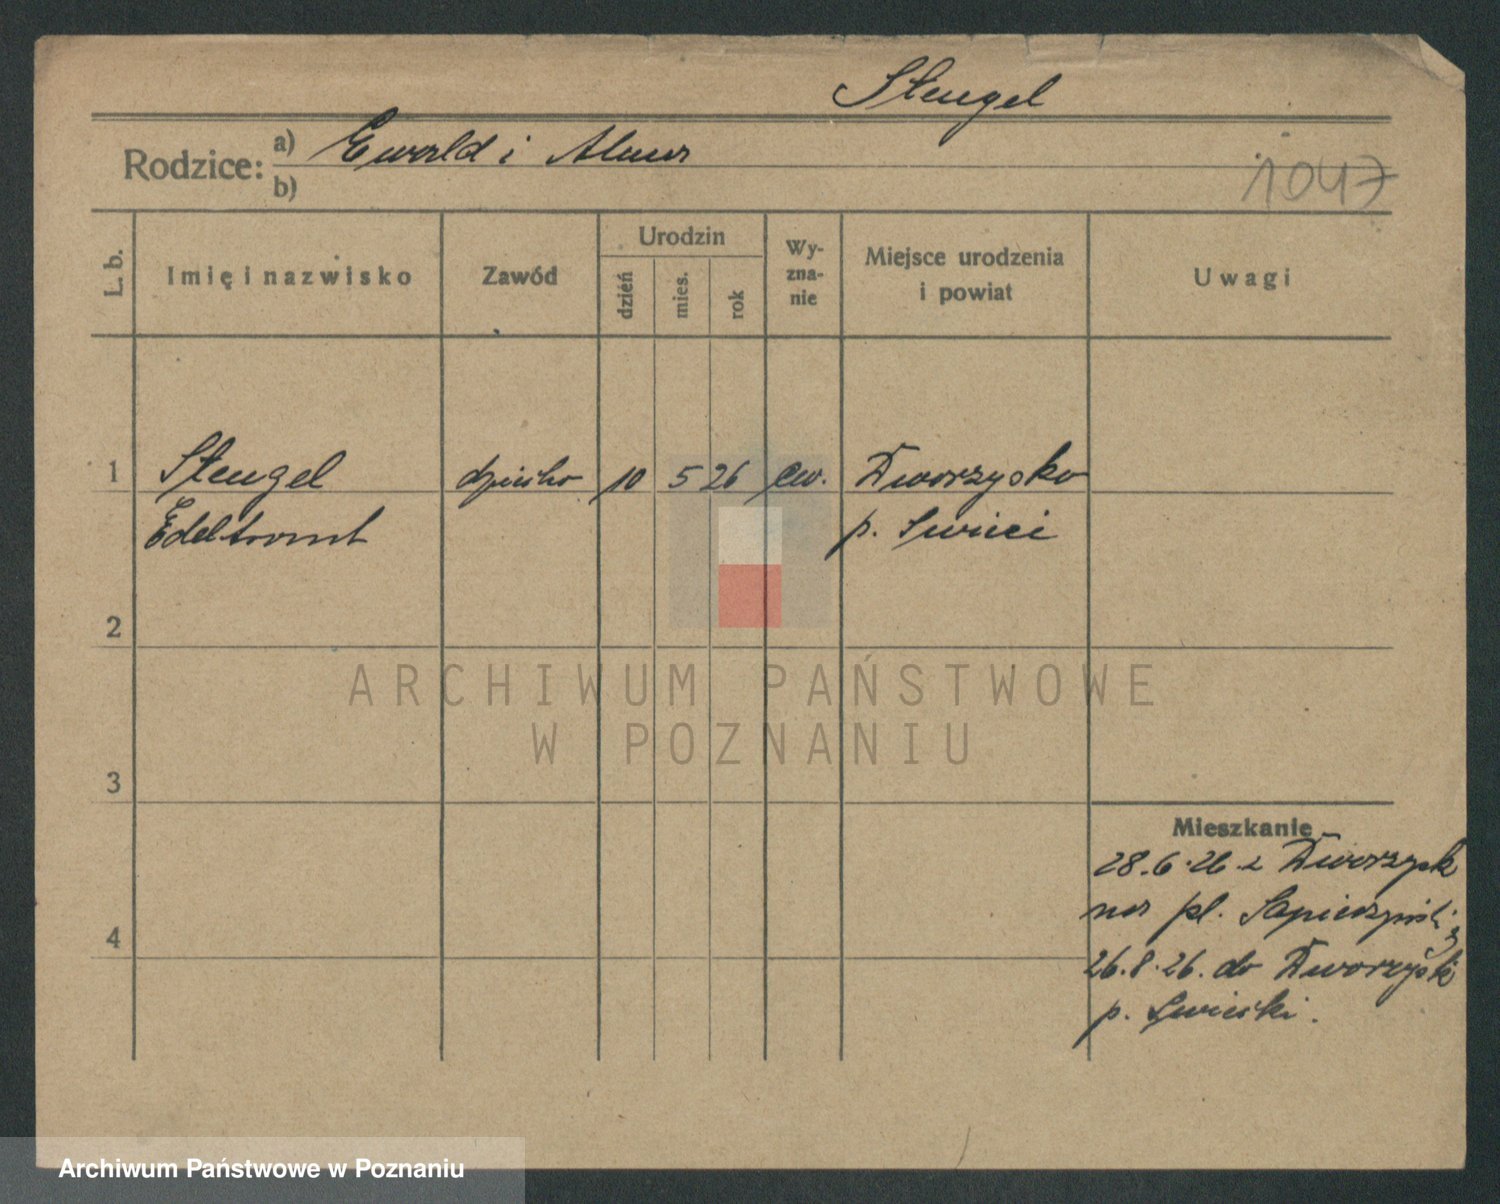 Stengel
Rodzice: a) Ewald i Alma
b)
1047
L. b.
Imię i nazwisko
Zawód
Urodzin
dzień
mies.
rok
Wy-
zna-
nie
Miejsce urodzenia
i powiat
Uwagi
1 Stengel dziecko 10 5 26 ew. Dworzysko
Edeltraut p. Swieci
2
3
4
Mieszkanie
28.6.26 z Dworzysk
na pl. Sapieżyński
26.8.26. do Dworzysk
p. Swiecki.
ARCHIWUM PAŃSTWOWE
W POZNANIU
Archiwum Państwowe w Poznaniu